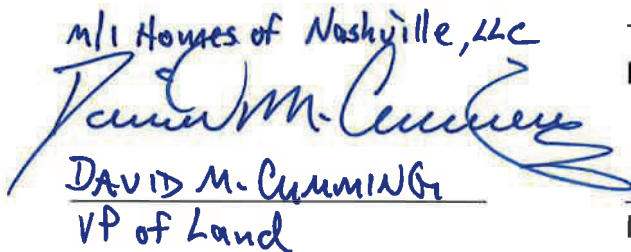 M/I Homes of Nashville, LLC
David M. Cummings
DAVID M. CUMMINGS
VP of Land